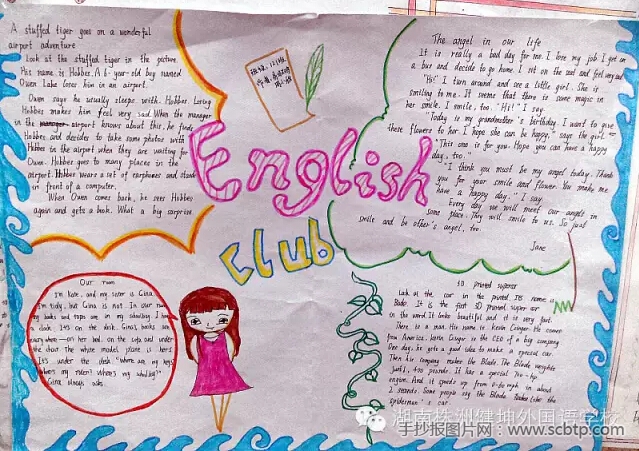 A stuffed tiger goes on a wonderful
airport adventure
Look at the stuffed tiger in the picture.
His name is Hobbes. A 6-year-old boy named
Owen Lake loses him in an airport.
Owen says he usually sleeps with Hobbes. Losing
Hobbes makes him feel very sad. When the manager
in the airport knows about this, he finds
Hobbes and decides to take some photos with
Hobbes in the airport when they are waiting for
Owen. Hobbes goes to many places in the
airport. Hobbes wears a set of earphones and stands
in front of a computer.
When Owen comes back, he sees Hobbes
again and gets a book. What a big surprise
English
club
The angel in our life
It is really a bad day for me. I lose my job. I get on
a bus and decide to go home. I sit on the seat and feel very sad.
"Hi!" I turn around and see a little girl. She is
smiling to me. It seems that there is some magic in
her smile. I smile, too. "Hi!" I say.
"Today is my grandmother's birthday. I want to give
these flowers to her. I hope she can be happy," says the girl.
"This one is for you. Hope you can have a happy
day, too."
"I think you must be my angel today. Thank
you for your smile and flower. You make me
have a happy day," I say.
Every day we will meet our angels in
some place. They will smile to us. So just
smile and be other's angel, too.
Jane
Our room
I'm Kate, and my sister is Gina.
I'm tidy, but Gina is not. In our room
my books and tapes are in my schoolbag. I have
a clock. It's on the desk. Gina's books are
everywhere—on her bed, on the sofa and under
the chair. The white model plane is hers.
It's under the desk. "Where are my keys?
Where's my ruler? Where's my schoolbag?"
Gina always asks.
3D printed supercar
Look at the car in the picture. Its name is
Blade. It is the first 3D printed super car
in the world. It looks beautiful and it is very fast.
There is a man. His name is Kevin Czinger. He comes
from America. Kevin Czinger is the CEO of a big company.
One day, he gets a good idea to make a special car.
Then his company makes the Blade. The Blade weighs
just 1,400 pounds. It has a special 700-hp
engine. And it speeds up from 0-60 mph in about
2 seconds. Some people say the Blade looks like the
spiderman's car.
湖南株洲健坤外国语学校
手抄报图片网:www.scbtp.com